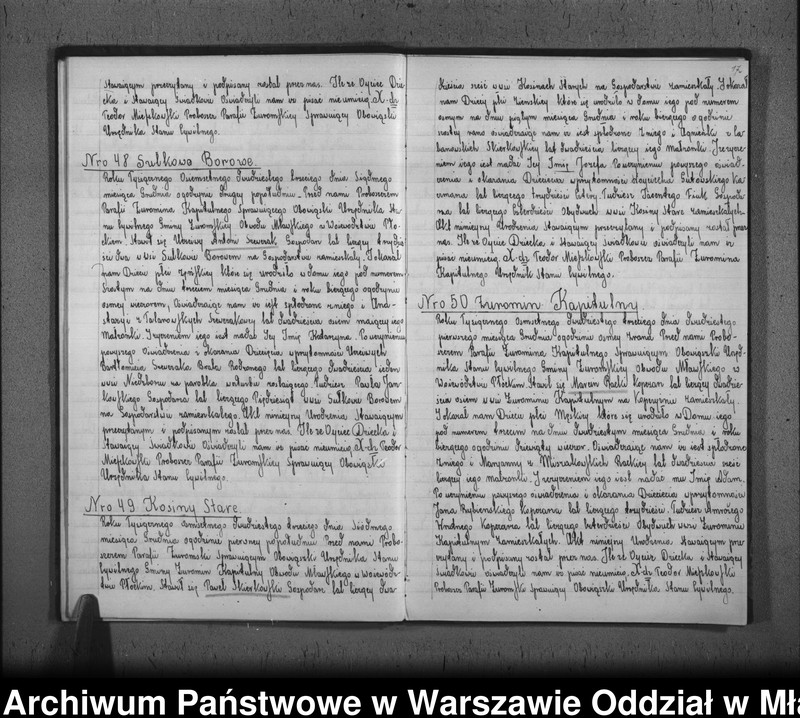 Stawaiącym przeczytany i podpisany został przez nas. Ile że Oyciec Dzie-
cka i Stawaiący Świadkowie Oświadczyli nam iż pisać nieumieią. X. dz
Teodor Mieszkowski Proboszcz Parafii Żuromskiey Sprawuiący Obowiązki
Urzędnika Stanu Cywilnego.
Nro 48 Sulkowo Borowe.
Roku Tysiącznego Ośmsetnego Dwudziestego trzeciego dnia Siódmego
miesiąca Grudnia o godzinie drugiey popołudniu. Przed nami Proboszczem
Parafii Żuromina Kapitulnego Sprawuiącego Obowiązki Urzędnika Sta-
nu Cywilnego Gminy Żuromskiey Obwodu Mławskiego w Woiewództwie Pło-
ckiem Stawił się Uczciwy Antoni Siewrak Gospodarz lat liczący trzydzie-
ści dwa w wsi Sulkowie Borowem na Gospodarstwie zamieszkały. I okazał
nam Dziecie płci żyńskiey które się urodziło w domu iego pod numerem
szóstym na dniu trzecim miesiąca Grudnia i roku bieżącego o godzinie
osmey wieczorem, oświadczaiąc nam iż iest spłodzone z niego i Ana-
staryi z Talanowskych Siewrakowey lat dwadzieścia osiem maiącey iego
Małżonki. I życzeniem iego iest nadać Jey Imię Katarzyna. Po uczynieniu
powyższego oświadczenia i okazania Dziecięcia w przytomności Uczciwych
Bartłomieia Siewraka Brata Rodzonego lat liczącego dwadzieścia ieden
w wsi Niedzborzu za parobka zostaiącego tudzież Pawła Jan-
kowskiego Gospodarza lat liczącego Pięćdziesiąt w wsi Sulkowie Borowem
na Gospodarstwie zamieszkałego. Akt ninieyszy Urodzenia Stawaiącym
przeczytanym i podpisanym został przez nas. Ile że Oyciec Dziecka i
Stawaiący Świadkowie oświadczyli nam iż pisać nieumieią. X. dz Teodor
Mieszkowski Proboszcz Parafii Żuromskiey Sprawuiący Obowiązki
Urzędnika Stanu Cywilnego.
Nro 49 Kosiny Stare.
Roku Tysiącznego Ośmsetnego Dwudziestego trzeciego dnia Siódmego
miesiąca Grudnia o godzinie pierwszey popołudniu Przed nami Probo-
szczem Parafii Żuromski Sprawuiącym Obowiązki Urzędnika Stanu
Cywilnego Gminy Żuromin Kapitulny Obwodu Mławskiego w Woiewódz-
twie Płockim. Stawił się Paweł Skierkowski Gospodarz lat liczący dwa-
17
dzieścia sześć w wsi Kosinach Starych na Gospodarstwie zamieszkały I okazał
nam Dziecie płci żeńskiey które się urodziło w domu iego pod numerem
osmym na dniu piątym miesiąca Grudnia i roku bieżącego o godzinie
szóstey rano oświadczaiąc nam iż iest spłodzone z niego i Agnieszki z Ła-
banowskich Skierkowskiey lat dwadzieścia liczącey iego małżonki. I życze-
niem iego iest nadać Jey Imię Jozefa. Po uczynieniu powyższego oświad-
czenia i okazania Dziecięcia w przytomności Woyciecha Sutkowskiego Ka-
czmarza lat liczącego trzydzieści cztery. Tudzież Jacentego Fiuk Gospoda-
rza lat liczącego czterdzieści Obydwuch w wsi Kosiny Stare zamieszkałych.
Akt ninieyszy Urodzenia Stawaiącym przeczytany i podpisany został przez
nas. Ile że Oyciec Dziecka i Stawaiący świadkowie oświadczyli nam iż
pisać nieumieią. X. dz. Teodor Mieszkowski Proboszcz Parafii Żuromina
Kapitulnego Urzędnik Stanu Cywilnego.
Nro 50 Żuromin Kapitulny
Roku Tysiącznego Ośmsetnego Dwudziestego trzeciego dnia dwudziestego
pierwszego miesiąca Grudnia o godzinie osmey zrana Przed nami Probo-
szczem Parafii Żuromina Kapitulnego Sprawuiącym Obowiązki Urzę-
dnika Stanu Cywilnego Gminy Żuromskiey Obwodu Mławskiego w
Woiewództwie Płockim Stawił się Marcin Raski Kopczarz lat liczący dwadzie-
ścia osiem w wsi Żurominie Kapitulnym na Kopczyznie zamieszkały.
I okazał nam Dziecie płci Męzkiey które się urodziło w Domu iego
pod numerem trzecim na dniu dwudziestym miesiąca Grudnia i roku
bieżącego o godzinie dziewiąty wieczor. Oświadczaiąc nam iż iest spłodzone
z niego i Maryanny z Murzakowskych Raskiey lat dwadzieścia sześć
liczącey iego małżonki. I życzeniem iego iest nadać mu Imię Adam.
Po uczynieniu powyższego oświadczenia i okazania Dziecięcia w przytomności
Jana Rybienskiego Kopczarza lat liczącego trzydzieści. Tudzież Ambrożego
Kopczarza lat liczącego czterdzieści Obydwuch w wsi Żurominie
Kapitulnym zamieszkałych. Akt ninieyszy Urodzenia Stawaiącym prze-
czytany i podpisany został przez nas. Ile że Oyciec Dziecka i Stawaiący
świadkowie oświadczyli nam iż pisać nieumieią. X. dz Teodor Mieszkowski
Proboszcz Parafii Żuromskiey Sprawuiący Obowiązki Urzędnika Stanu Cywilnego.
Archiwum Państwowe w Warszawie Oddział w Mła